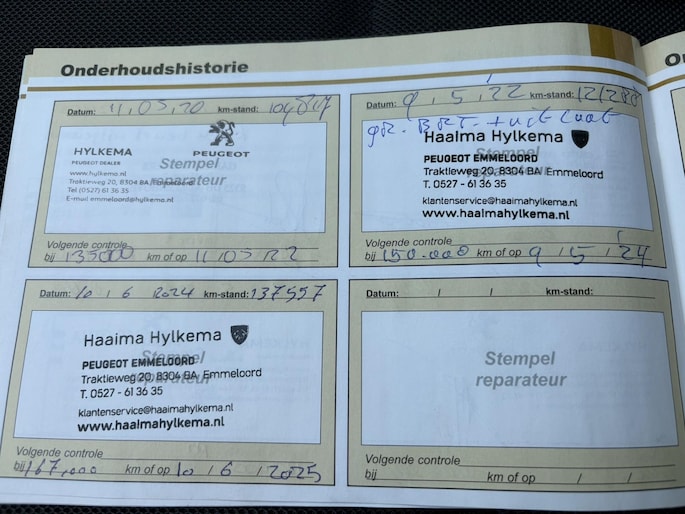 Onderhoudshistorie
Datum: 11, 05, 20 km-stand:
HYLKEMA
PEUGEOT DEALER
PEUGEOT
Stempel
reparateur
www.hylkema.nl
Traktieweg 20, 8304 BA, Emmeloord
Tel (0527) 61 36 35
E-mail emmeloord@hylkema.nl
Volgende controle
bij 135000 km of op 11/05/22
Datum: 9, 5, 22 km-stand: 121288
gR. BRT. + uitlaat
Haaima Hylkema
PEUGEOT EMMELOORD
Stempel
reparateur
Traktieweg 20, 8304 BA Emmeloord
T. 0527 - 61 36 35
klantenservice@haaimahylkema.nl
www.haaimahylkema.nl
Volgende controle
bij 150.000 km of op 9/5/24
Datum: 10/6/2024 km-stand: 137557
Haaima Hylkema
PEUGEOT EMMELOORD
Stempel
reparateur
Traktieweg 20, 8304 BA Emmeloord
T. 0527 - 61 36 35
klantenservice@haaimahylkema.nl
www.haaimahylkema.nl
Volgende controle
bij 167.000 km of op 10/6/2025
Datum: / / km-stand:
Stempel
reparateur
Volgende controle
bij km of op / /